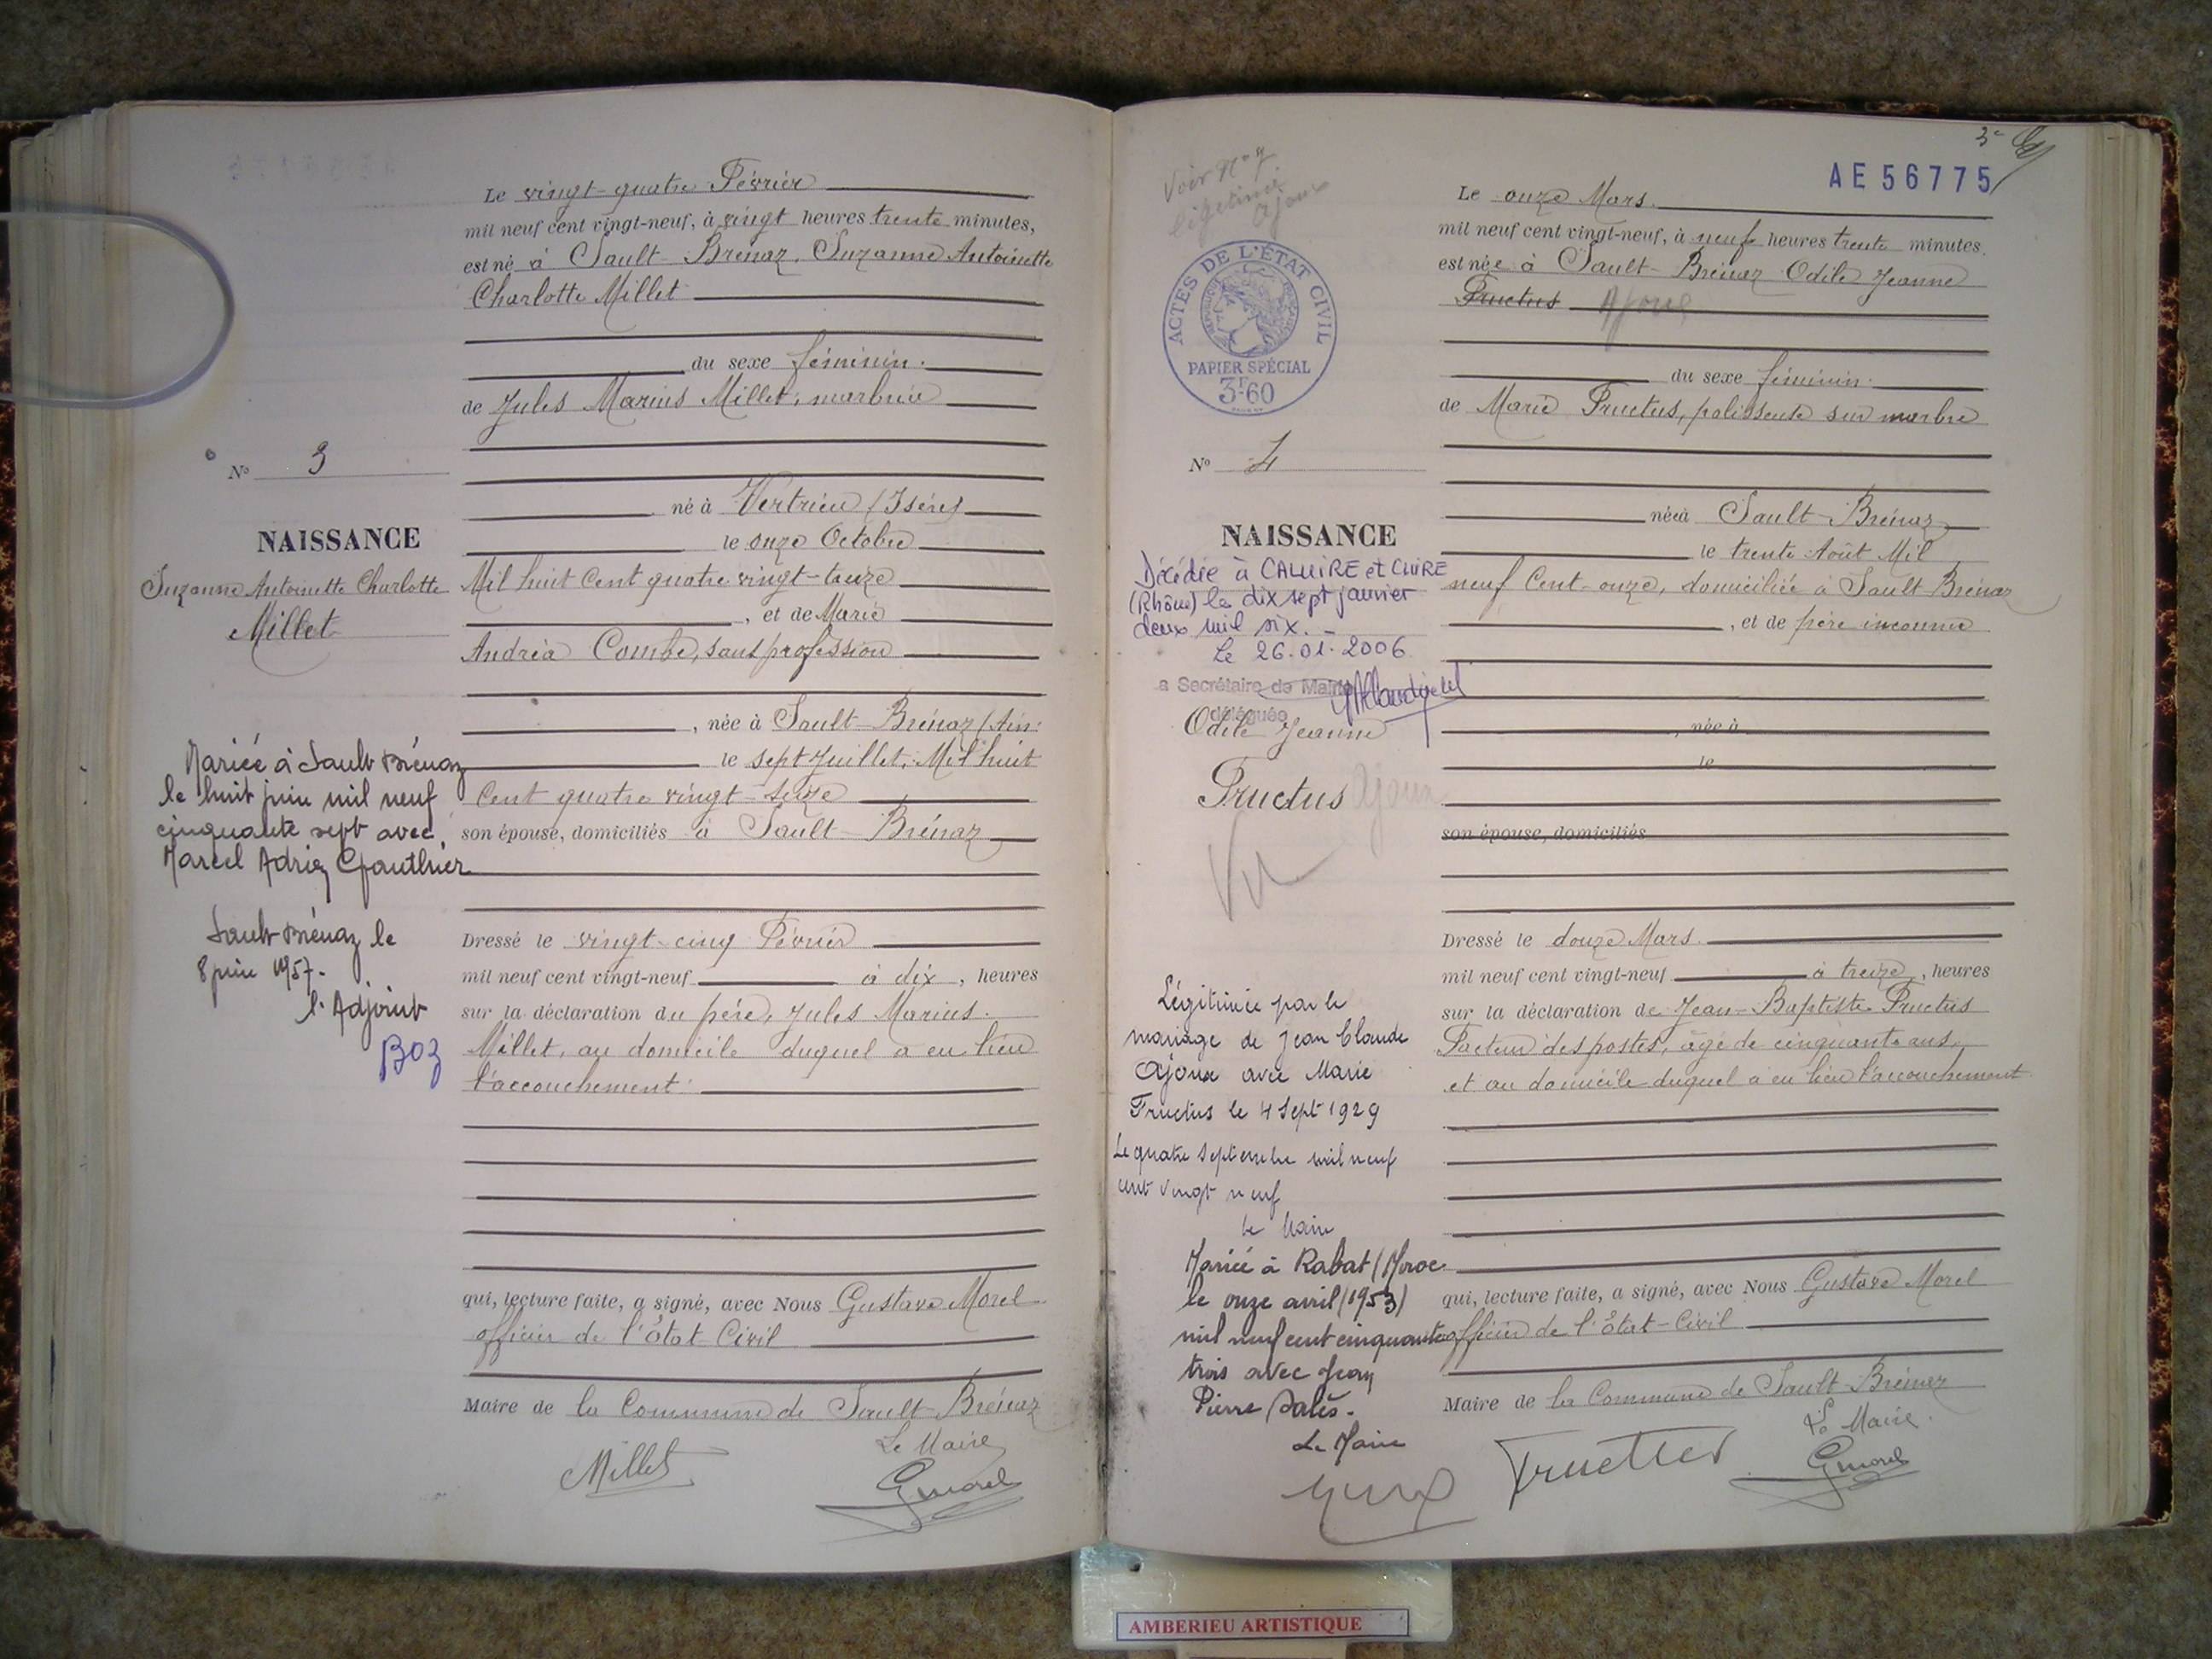 Le vingt-quatre Février
mil neuf cent vingt-neuf, à vingt heures trente minutes,
est né à Sault-Brénaz, Suzanne Antoinette
Charlotte Millet
du sexe féminin.
de Jules Marius Millet, marbrier
N° 3
né à Vertrieu (Isère)
le onze Octobre
NAISSANCE
Suzanne Antoinette Charlotte
Millet
Mil huit Cent quatre vingt-treize
, et de Marie
Andréa Combe, sans profession
, née à Sault-Brénaz (Ain)
le sept Juillet, Mil huit
Cent quatre vingt-seize
son épouse, domiciliés à Sault-Brénaz
Mariée à Sault Brénaz
le huit juin mil neuf
cinquante sept avec
Marcel Adrien Gauthier
Sault-Brénaz le
8 juin 1957.
l'Adjoint
Dressé le vingt-cinq Février
mil neuf cent vingt-neuf à dix, heures
sur la déclaration du père, Jules Marius
Millet, au domicile duquel a eu lieu
l'accouchement.
qui, lecture faite, a signé, avec Nous Gustave Morel
officier de l'État Civil
Maire de la Commune de Sault-Brénaz
Le Maire
Millet
GMorel
3e
AE 56775
Voir N° 7
légitimée
Ajoux
ACTES DE L'ÉTAT CIVIL
PAPIER SPÉCIAL
3F60
Le onze Mars.
mil neuf cent vingt-neuf, à neuf heures trente minutes.
est née à Sault-Brénaz Odile Jeanne
Fructus Ajoux
du sexe féminin.
de Marie Fructus, polisseuse sur marbre
N° 4
née à Sault-Brénaz
le trente Août Mil
neuf Cent-onze, domiciliée à Sault-Brénaz
, et de père inconnu
NAISSANCE
Décédée à CALUIRE et CUIRE
(Rhône) le dix sept janvier
deux mil six. -
Le 26.01.2006
a Secrétaire de Mairie
déléguée
Odile Jeanne
Fructus Ajoux
Vu
, née à
le
son épouse, domiciliés
Dressé le douze Mars.
mil neuf cent vingt-neuf à treize, heures
sur la déclaration de Jean-Baptiste Fructus
Facteur des postes, âgé de cinquante ans,
et au domicile duquel a eu lieu l'accouchement
Légitimée par le
mariage de Jean Claude
Ajoux avec Marie
Fructus le 4 Sept 1929
Le quatre septembre mil neuf
cent vingt neuf
Le Maire
Mariée à Rabat (Maroc
le onze avril (1953)
mil neuf cent cinquante
trois avec Jean
Pierre
Le Maire
qui, lecture faite, a signé, avec Nous Gustave Morel
officier de l'État-Civil
Maire de la Commune de Sault-Brénaz
Le Maire.
GMorel
AMBERIEU ARTISTIQUE